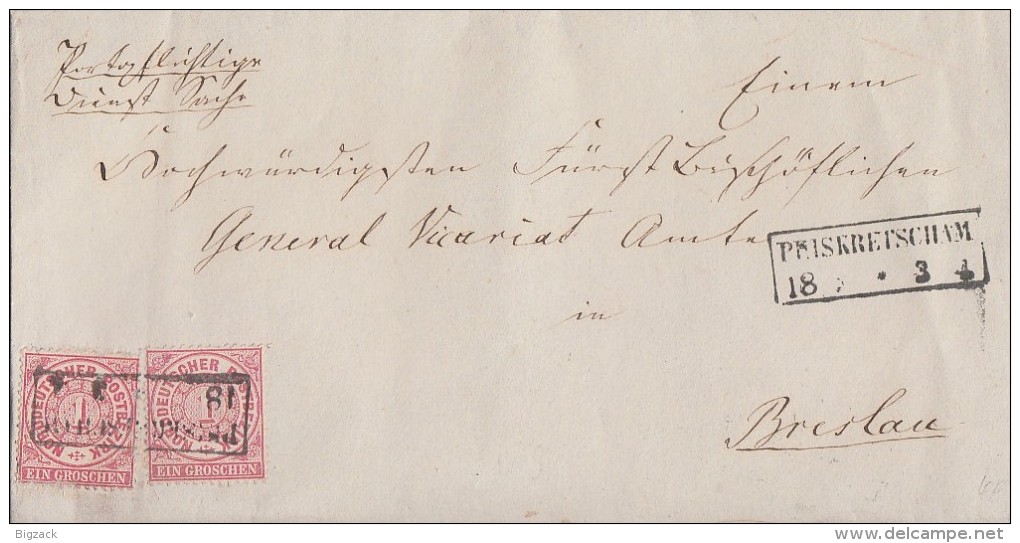 Portopflichtige
Dienst Sache
Einem
Hochwürdigsten Fürst Bischöflichen
General Vicariat Amte
PEISKRETSCHAM
18 * 3 4
in
NORDDEUTSCHER POSTBEZIRK
1
EIN GROSCHEN
NORDDEUTSCHER POSTBEZIRK
1
EIN GROSCHEN
18
Breslau
Bigzack
www.delcampe.net